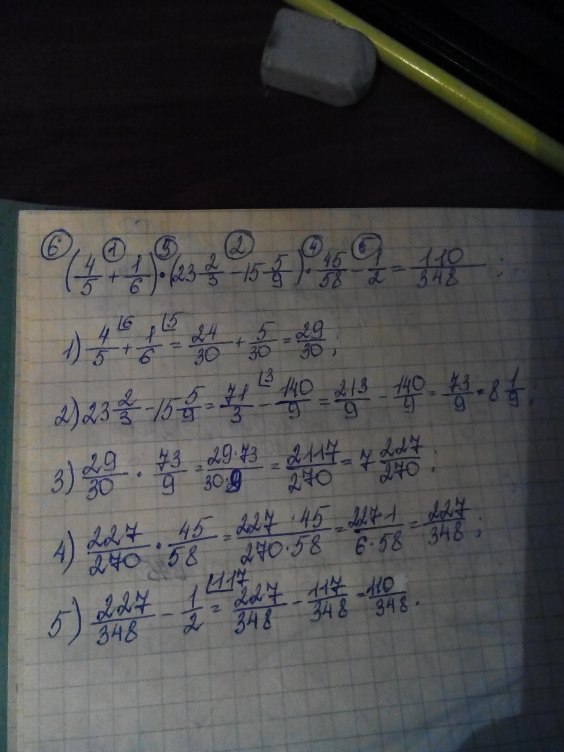 ⑥ ① ③ ② ④ ⑤
(4/5 + 1/6) · (23 2/3 - 15 5/9) · 45/58 - 1/2 = 110/348 ;
1) 4/5 ⌊6 + 1/6 ⌊5 = 24/30 + 5/30 = 29/30 ;
2) 23 2/3 - 15 5/9 = 71/3 ⌊3 - 140/9 = 213/9 - 140/9 = 73/9 = 8 1/9 ;
3) 29/30 · 73/9 = 29·73/30·9 = 2117/270 = 7 227/270 ;
4) 227/270 · 45/58 = 227·45/270·58 = 227·1/6·58 = 227/348 ;
5) 227/348 - 1/2 ⌊117 = 227/348 - 117/348 = 110/348 .